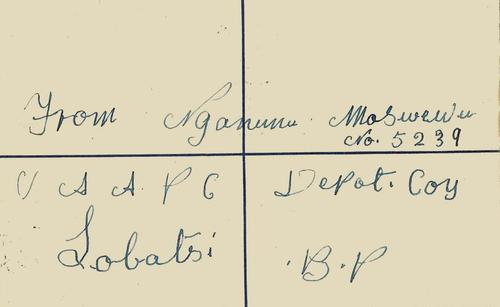 From Nganunu. Moswewu
No. 5239
U A A P C Depot. Coy
Lobatsi
.B.P